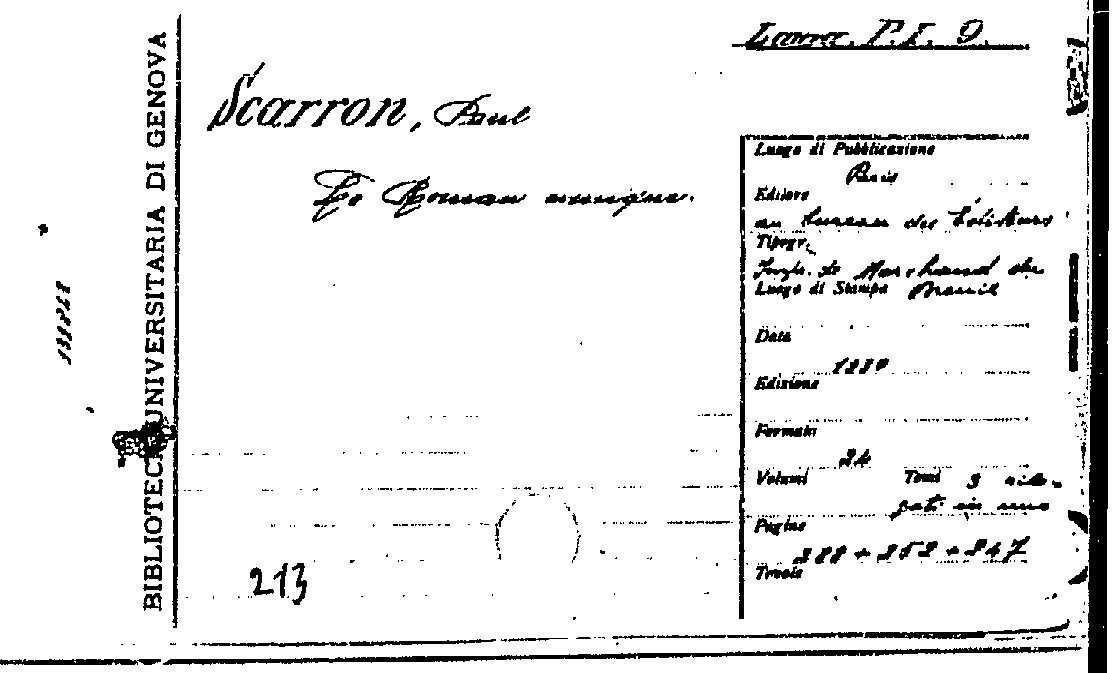 P.I. 9.
Scarron, Paul
Le Roman comique.
BIBLIOTECA UNIVERSITARIA DI GENOVA
Luogo di Pubblicazione
Paris
Editore
au bureau des Editeurs
Tipogr.
de Marchand du
Luogo di Stampa Breuil
Data
Edizione
Formato
24
Volumi Tomi 3
in uno
Pagine
Tavole
213